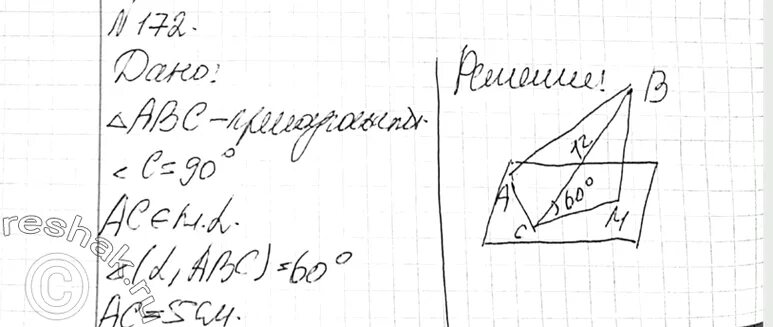 N 172.
Дано:
△ABC – прямоугольный.
< C = 90°
AC ∈ пл. α.
∠(α, ABC) = 60°
AC = 5 см.
Решение:
B
12
A
60°
M
C
reshak.ru
©